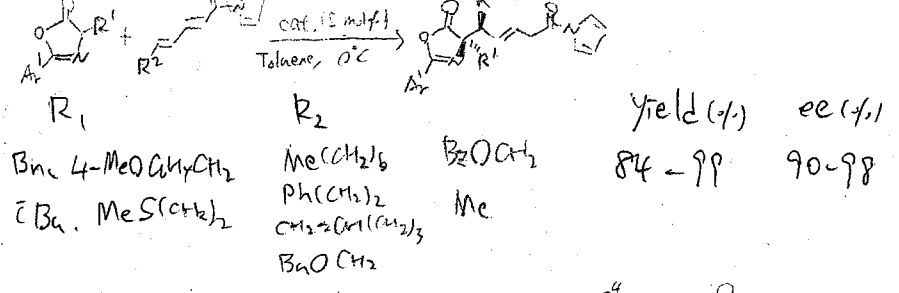 O R¹ + R² cat. (5 mol%) O R¹
Ar N Toluene, 0°C Ar N
R₁ R₂ Yield (%) ee (%)
Bn, 4-MeOC₆H₄CH₂ Me(CH₂)₆ BzOCH₂ 84 - 99 90-98
iBu. MeS(CH₂)₂ Ph(CH₂)₂ Me
CH₂=CH(CH₂)₃
BnOCH₂